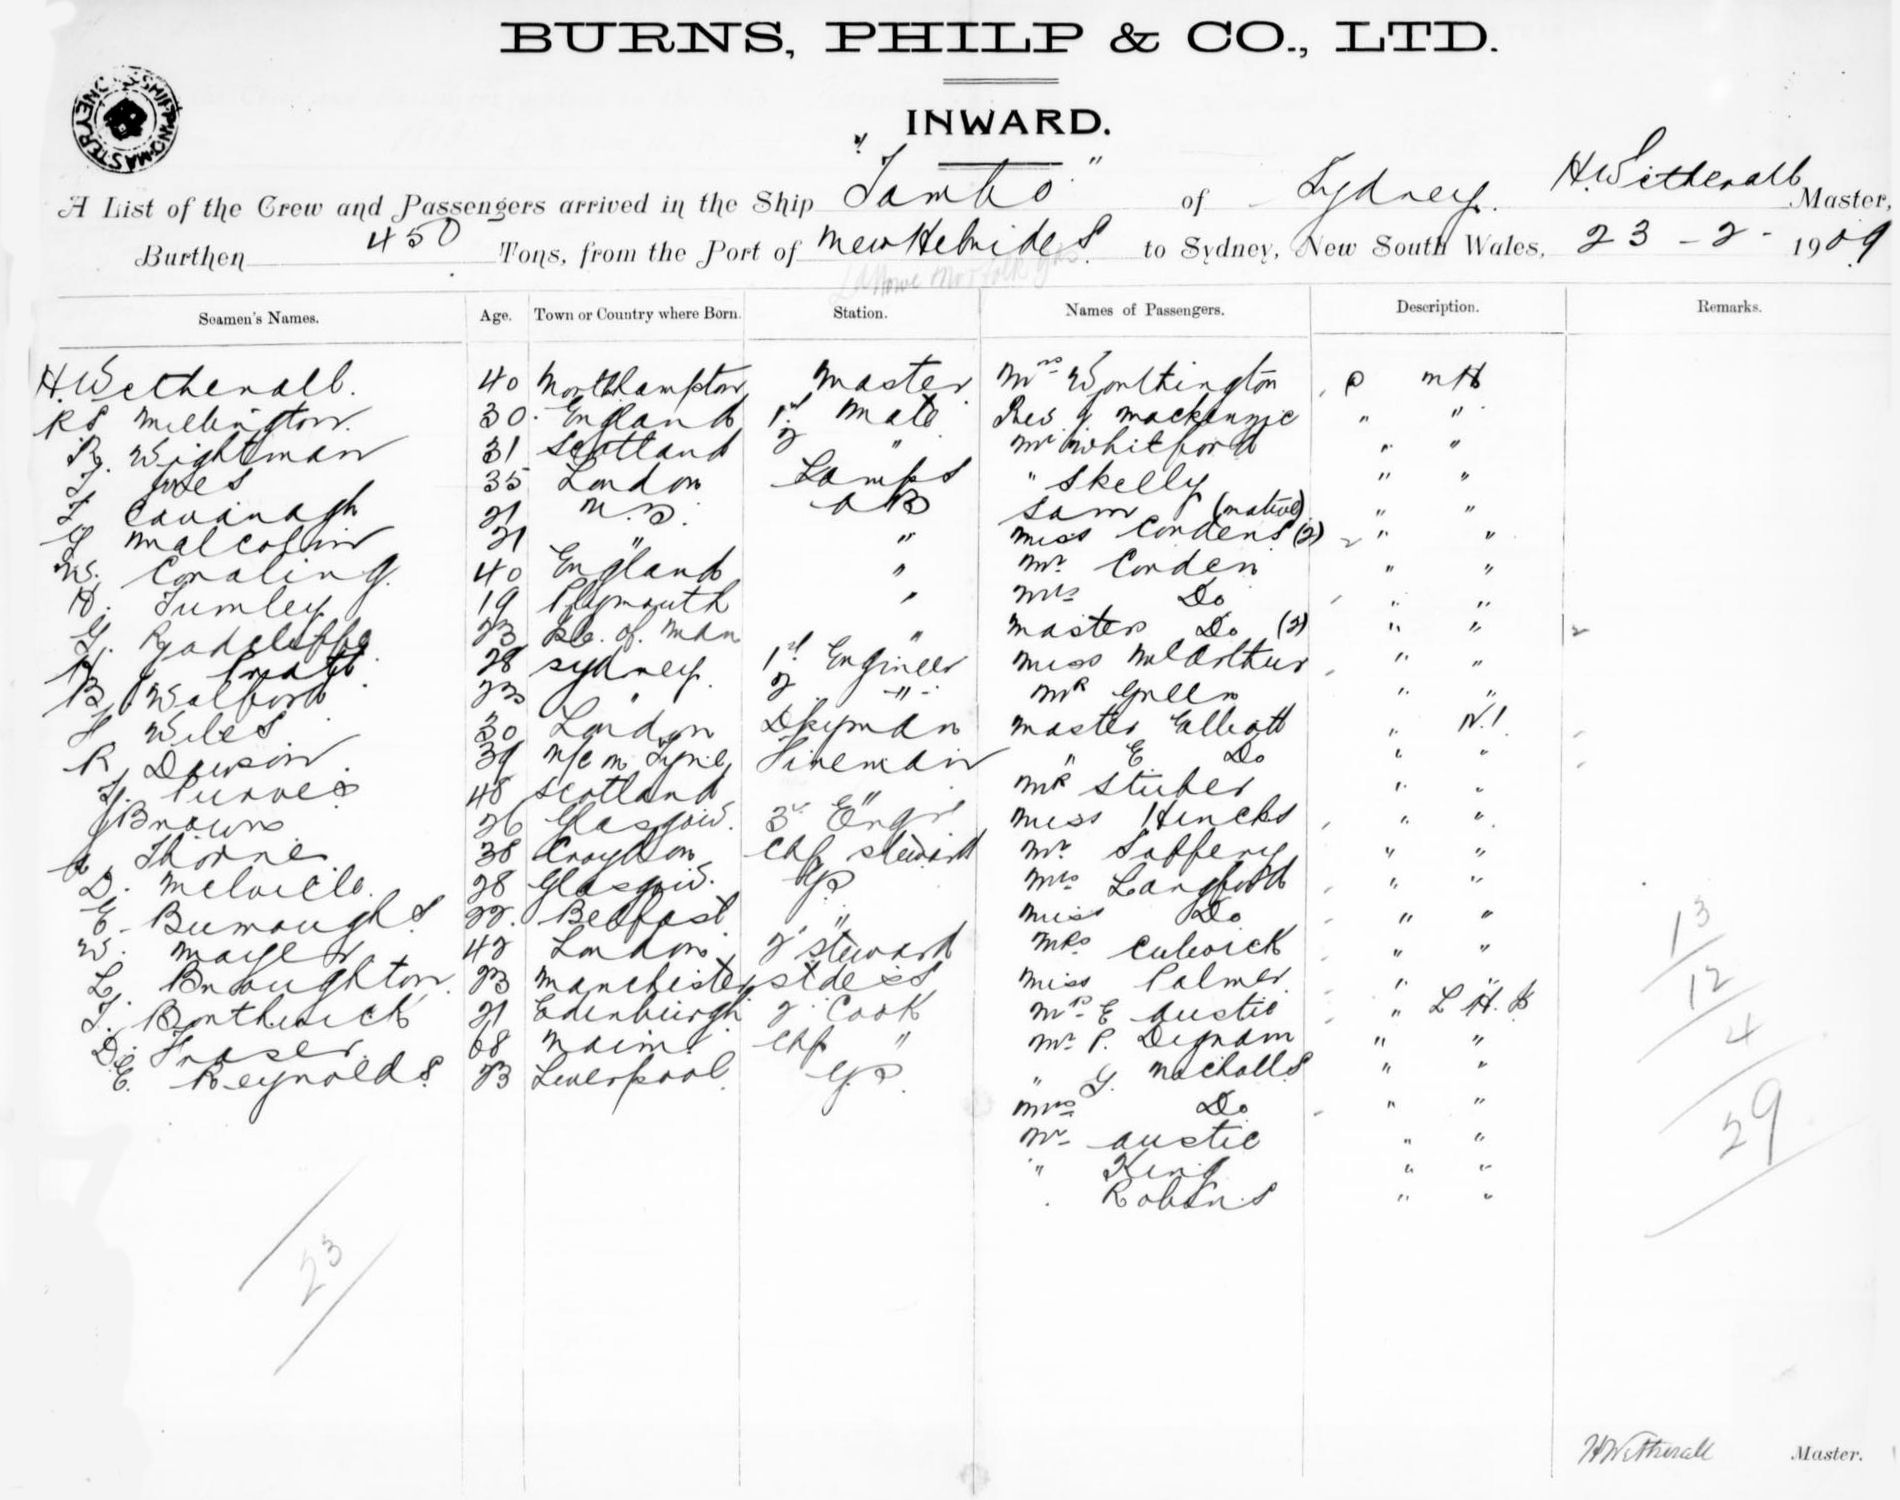 BURNS, PHILP & CO., LTD.
SHIPPING MASTER SYDNEY
INWARD.
A List of the Crew and Passengers arrived in the Ship "Tambo" of Sydney. H. Wetherall Master,
Burthen 450 Tons, from the Port of New Hebrides to Sydney, New South Wales, 23 - 2 - 1909
Ld Howe Norfolk Is
Seamen's Names. Age. Town or Country where Born. Station. Names of Passengers. Description. Remarks.
H. Wetherall. 40 Northampton Master Mrs Worthington P NH
RS Millington. 30. England 1st Mate Rev J Mackenzie " "
R. Wightman 31 Scotland 2 " Mr Whitford " "
T. 35 London Lamps " Skelly " "
T Cavanagh 21 N.S. AB Sam (native) " "
G Malcolm 21 " " Miss Cordens (2) 2 " "
W. Conaling. 40 England " Mr Corden " "
H. Tumley 19 Plymouth " Mrs Do " "
G. Radcliffe 23 Isle. of. Man " Masters Do (2) " " 2
H Pratt 28 Sydney. 1st Engineer Miss McArthur " "
B Walford. 23 " 2 " Mr Green " "
H Wiles 30 London Dkyman Master Elliott " N.I
R Dawson 39 N/C on Tyne Fireman " E Do " "
Purves 48 Scotland " Mr Stuber " "
J Brown 26 Glasgow. 3rd Engr Miss Hincks " "
A Thorne 38 Croydon Chf Steward Mr Saffery " "
D. Melville. 28 Glasgow. GS Mrs Langford " "
E Burroughs 22. Belfast. " Miss Do " "
W. Mayes 42 London 2 Steward Mrs Culwick " "
L. Broughton. 23 Manchester Stdess Miss Palmer " "
T. Borthwick 21 Edinburgh 2 Cook Mrs E Austic " L H. I
D. Fraser 68 Nairn Chf " Mr P. Dignam " "
E. Reynolds 23 Liverpool GS " G. Nicholls " "
Mrs Do " "
Mr Austic " "
" King " "
Robins " "
13
12
4
29
23
H Wetherall Master.